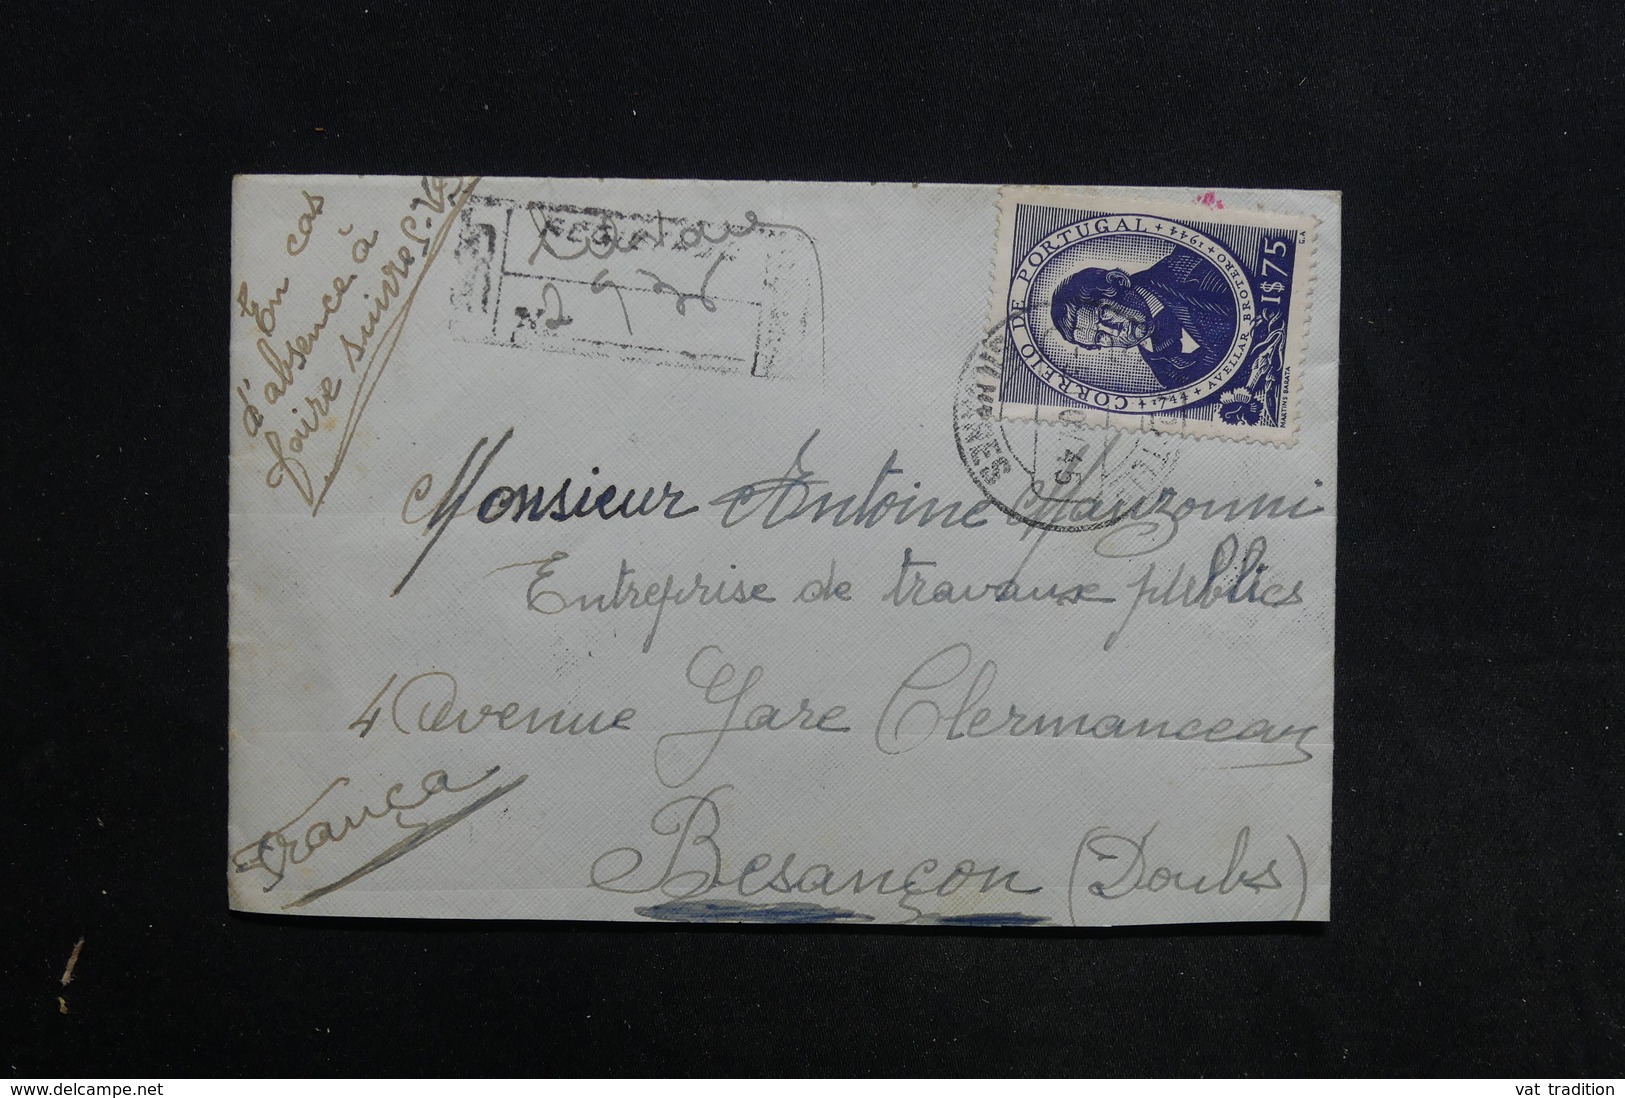 En cas
d'absence à
faire suivre S.V.P.
Nº 936
CORREIO DE PORTUGAL
+ 1744 + AVELLAR BROTERO + 1944 +
1$75
MARTINS BARATA
G.A
45
Monsieur Antoine Manzonni
Entreprise de travaux publics
4 Avenue Gare Clermanceau
Besançon (Doubs)
França
www.delcampe.net
vat_tradition